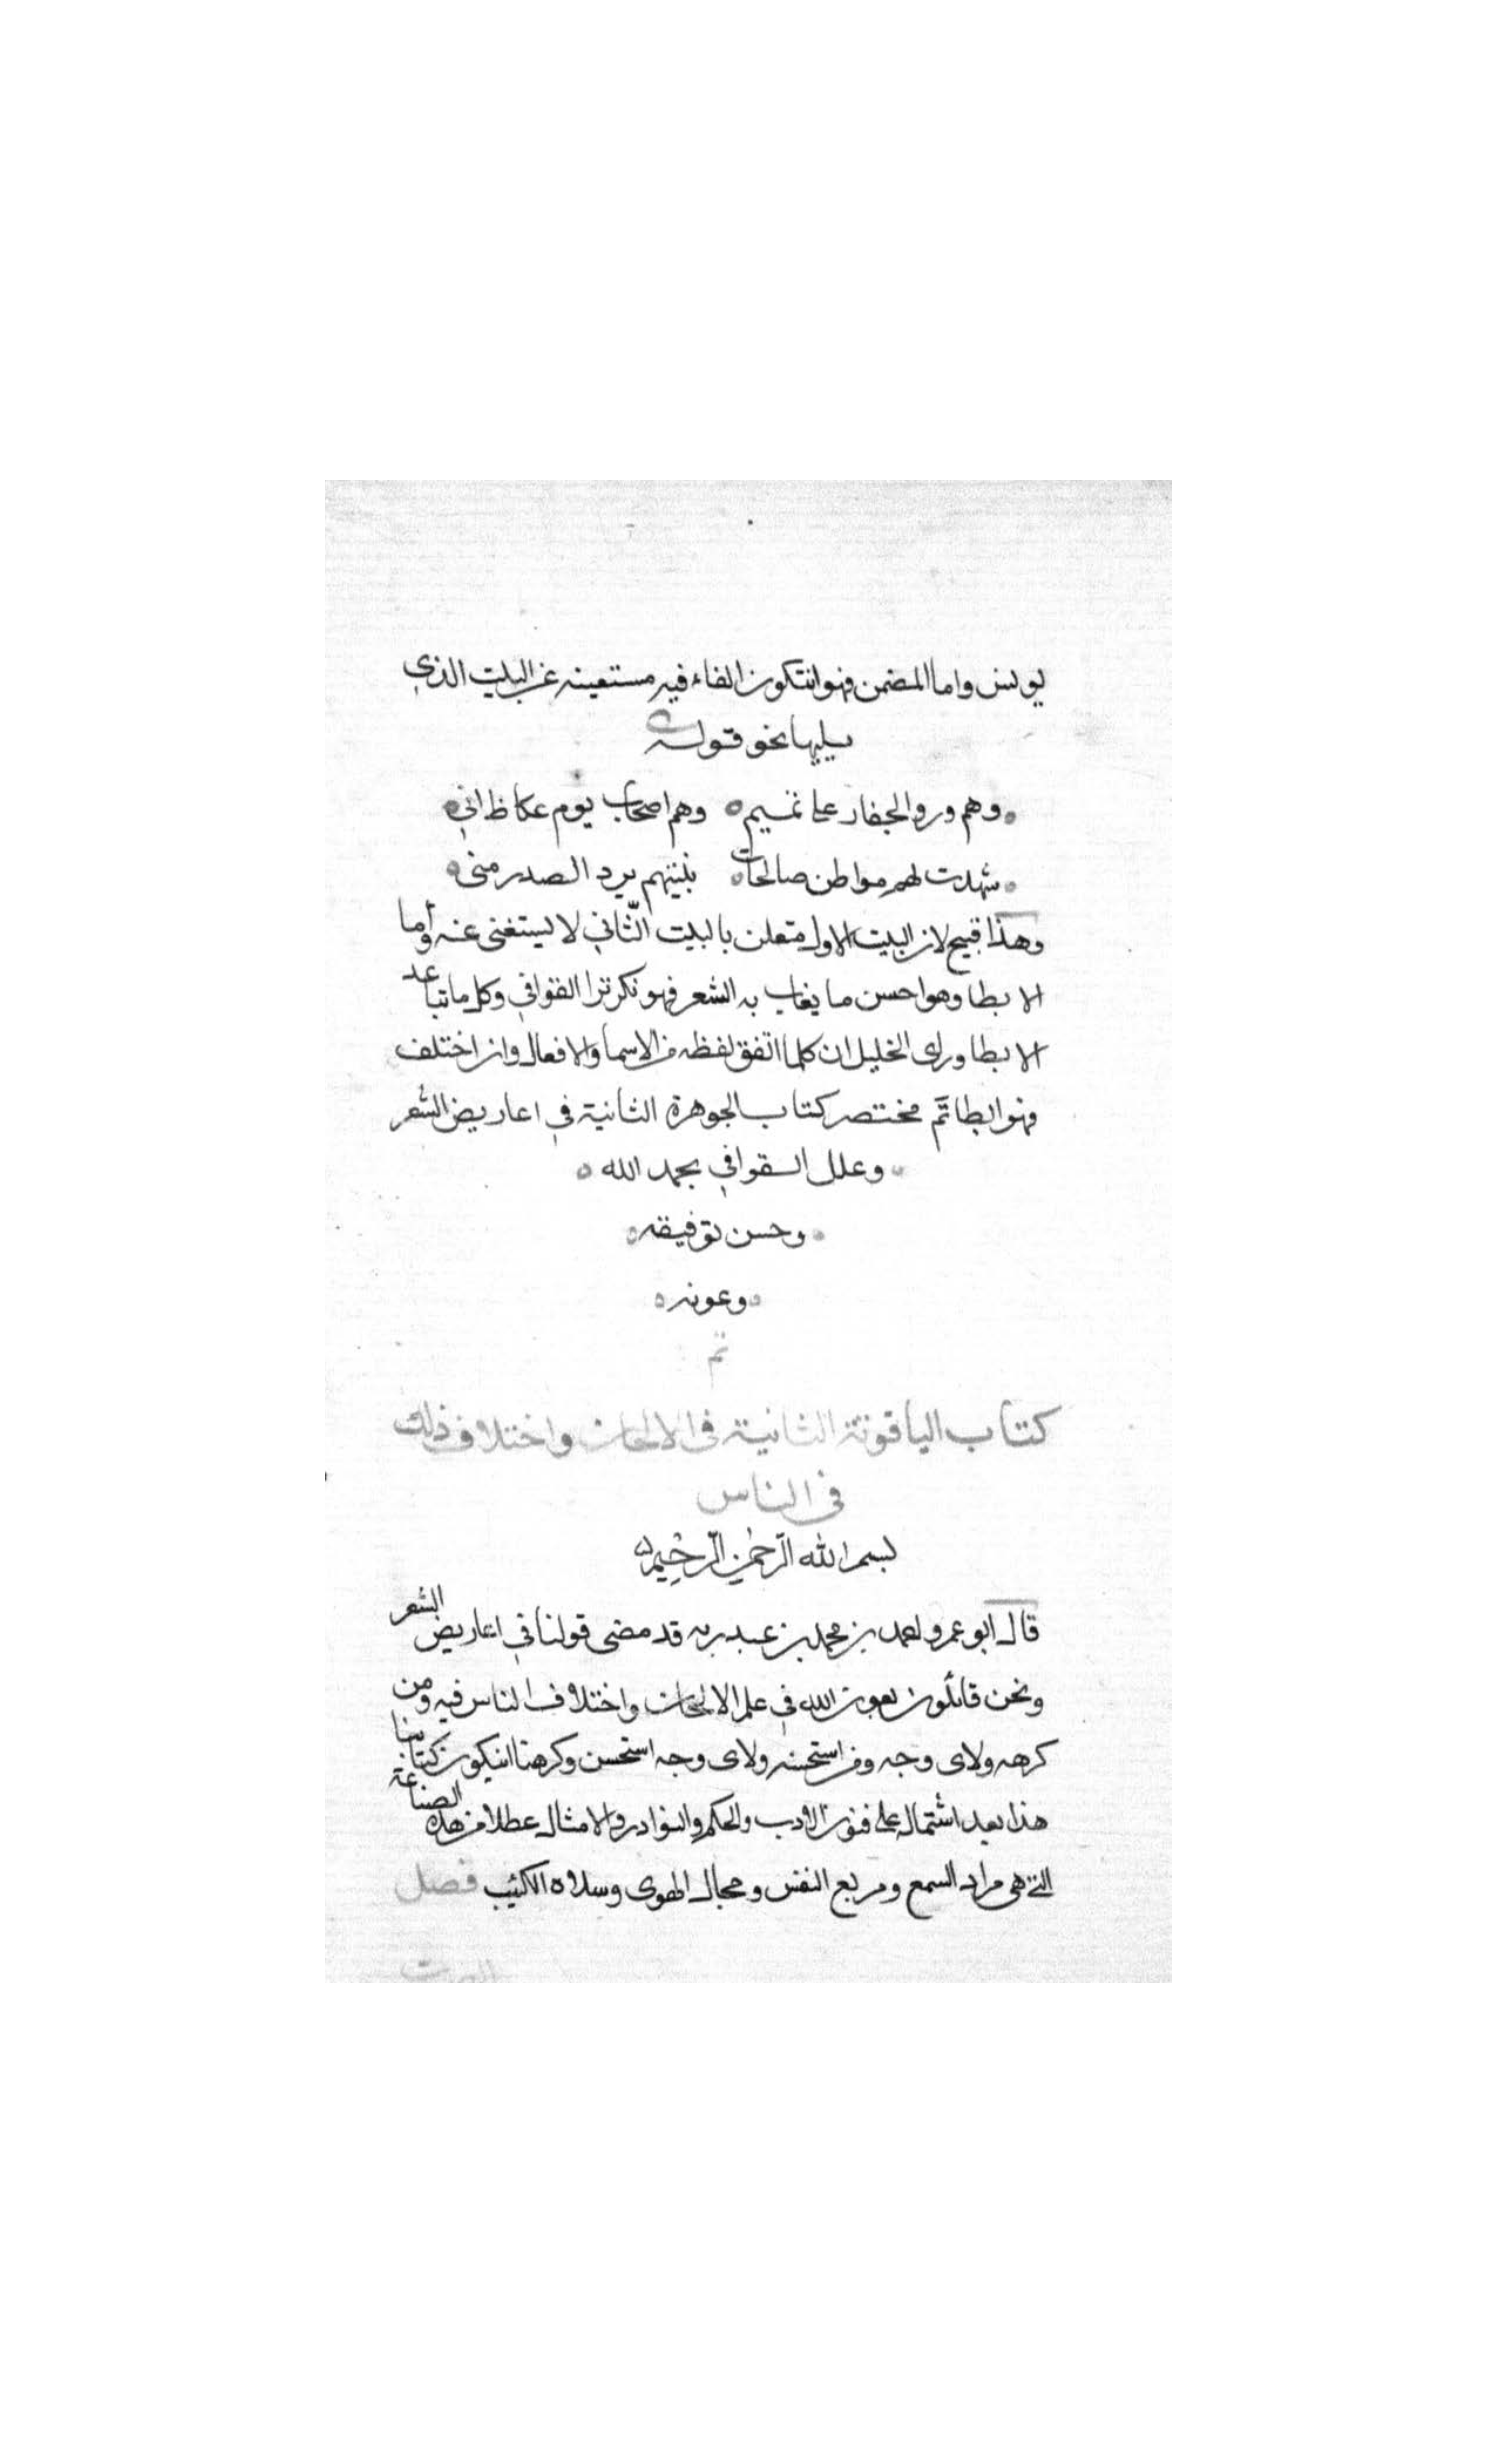 يونس واما المضمن فهو انتكون الفاء فيه مستعينه عن البيت الذي
يليها نحو قوله
وهم وردوا الجفار علا تميم ٥ وهم اصحاب يوم عكاظ اني ٥
شهدت لهم مواطن صالحات ٥ بنيتهم برد الصدر مني ٥
وهذا قبيح لان البيت الاول متعلق بالبيت الثّاني لا يستغنى عنه وأما
الا يطا وهو احسن ما يعاب به الشعر فهو تكرترا القوافي وكل ما تباعد
الا يطا وراى الخليل ان كلما اتفق لفظه من الاسما والافعال وان اختلف
فهو ايطا تَم مختصر كتاب الجوهرة الثانية في اعاريض الشعر
وعلل القوافي بحمد الله ٥
وحسن توفيقه ٥
وعونه ٥
تم
كتاب الياقوتة الثانية فى الالحان واختلاف ذلك
فى الناس
بسم الله الرّحمٰن الرّحِيم ٥
قال ابو عمرو احمد بن محمد بن عبد ربه قد مضى قولنا في اعاريض الشعر
ونحن قائلون بعون الله في علم الالحان واختلاف الناس فيه ومن
كرهه ولاى وجه ومن استحسنه ولاى وجه استحسن وكرهنا انيكون كتابنا
هذا بعد اشتماله على فنون الادب والحكم والنوادر والامثال عطلا من هذه الصناعة
التي هي مراد السمع ومربع النفس ومجال الهوى وسلاه الكئيب فصل